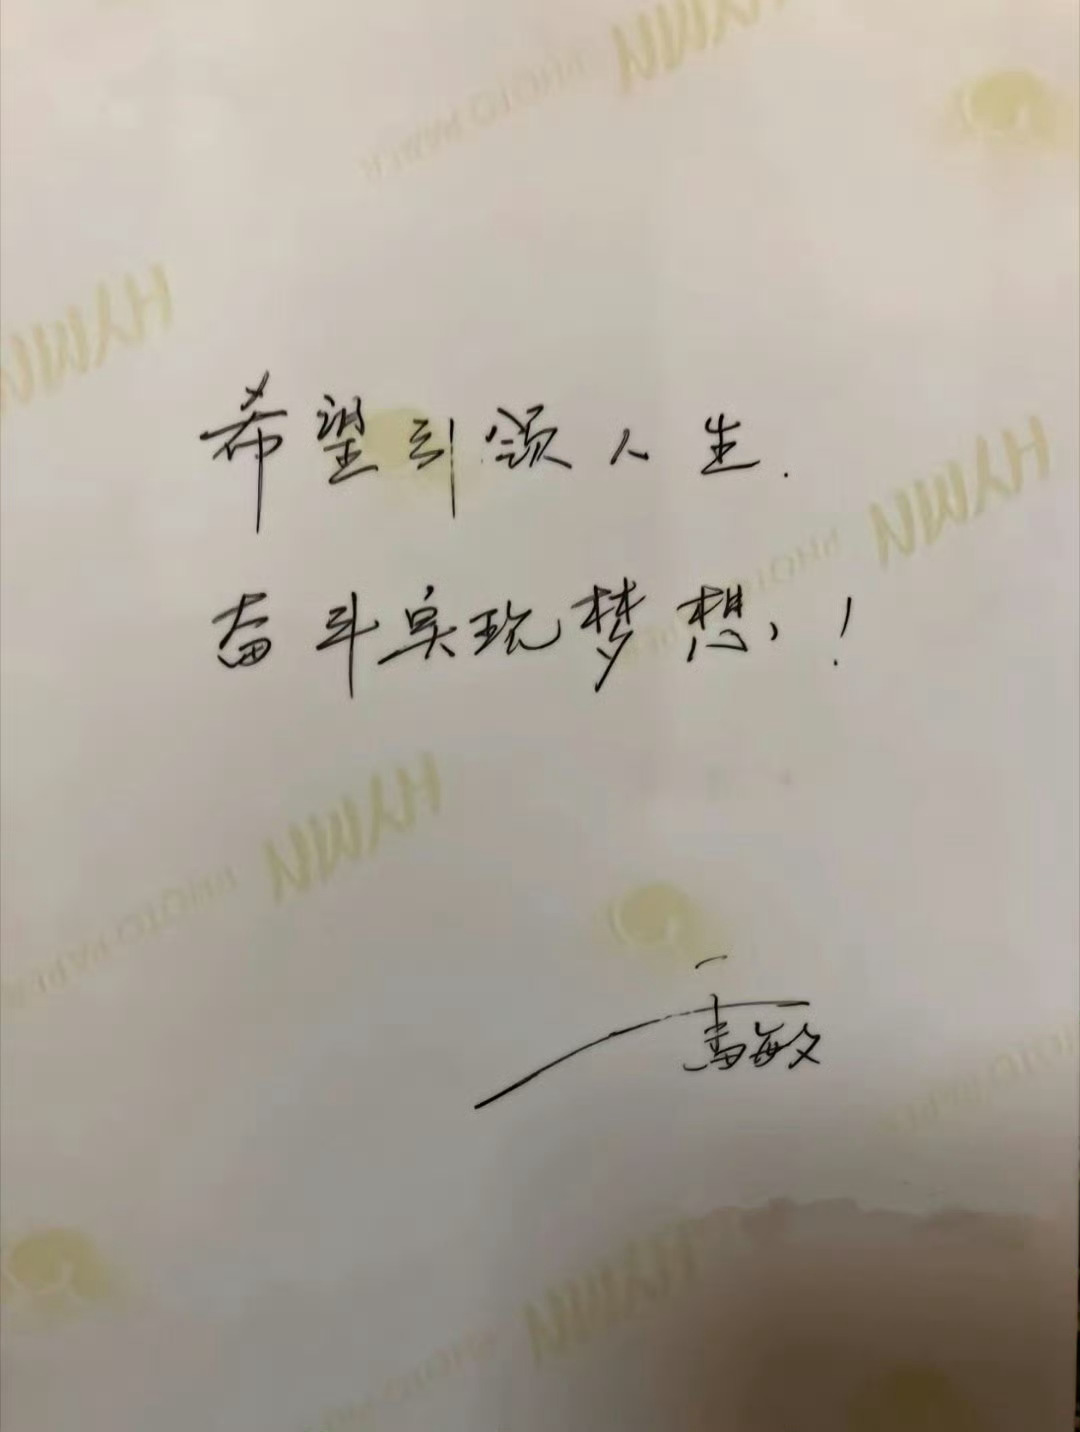 希望引领人生.
奋斗实现梦想，!
HYMN PHOTO PAPER